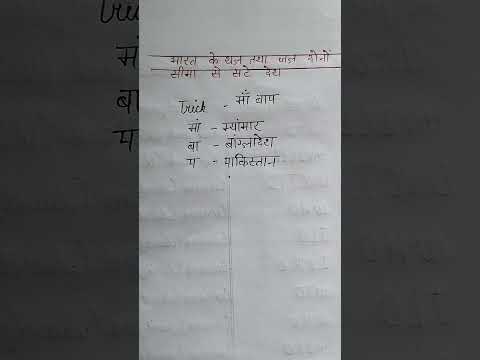 भारत के थल तथा जल दोनों
सीमा से सटे देश
Trick - माँ बाप
मां - म्यांमार
बा - बांग्लादेश
प - पाकिस्तान